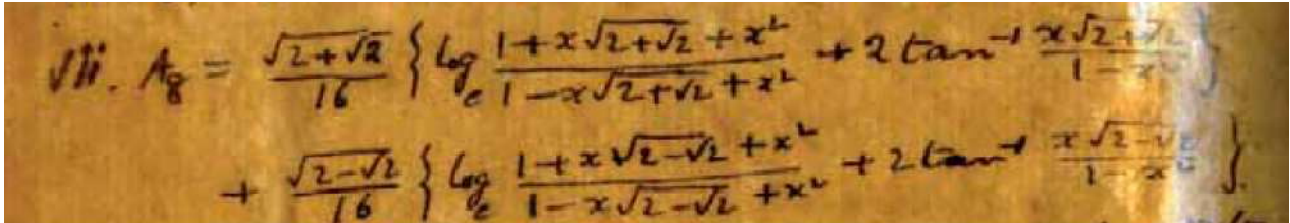 vii. A₈ = √(2+√2)/16 { logₑ (1+x√(2+√2)+x²)/(1−x√(2+√2)+x²) + 2 tan⁻¹ x√(2+√2)/(1−x²) }
+ √(2−√2)/16 { logₑ (1+x√(2−√2)+x²)/(1−x√(2−√2)+x²) + 2 tan⁻¹ x√(2−√2)/(1−x²) }.